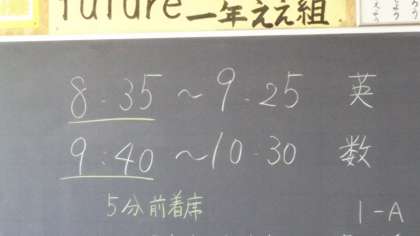 future 一年ええ組
8.35～9.25 英
9:40～10.30 数
5分前着席
1-A